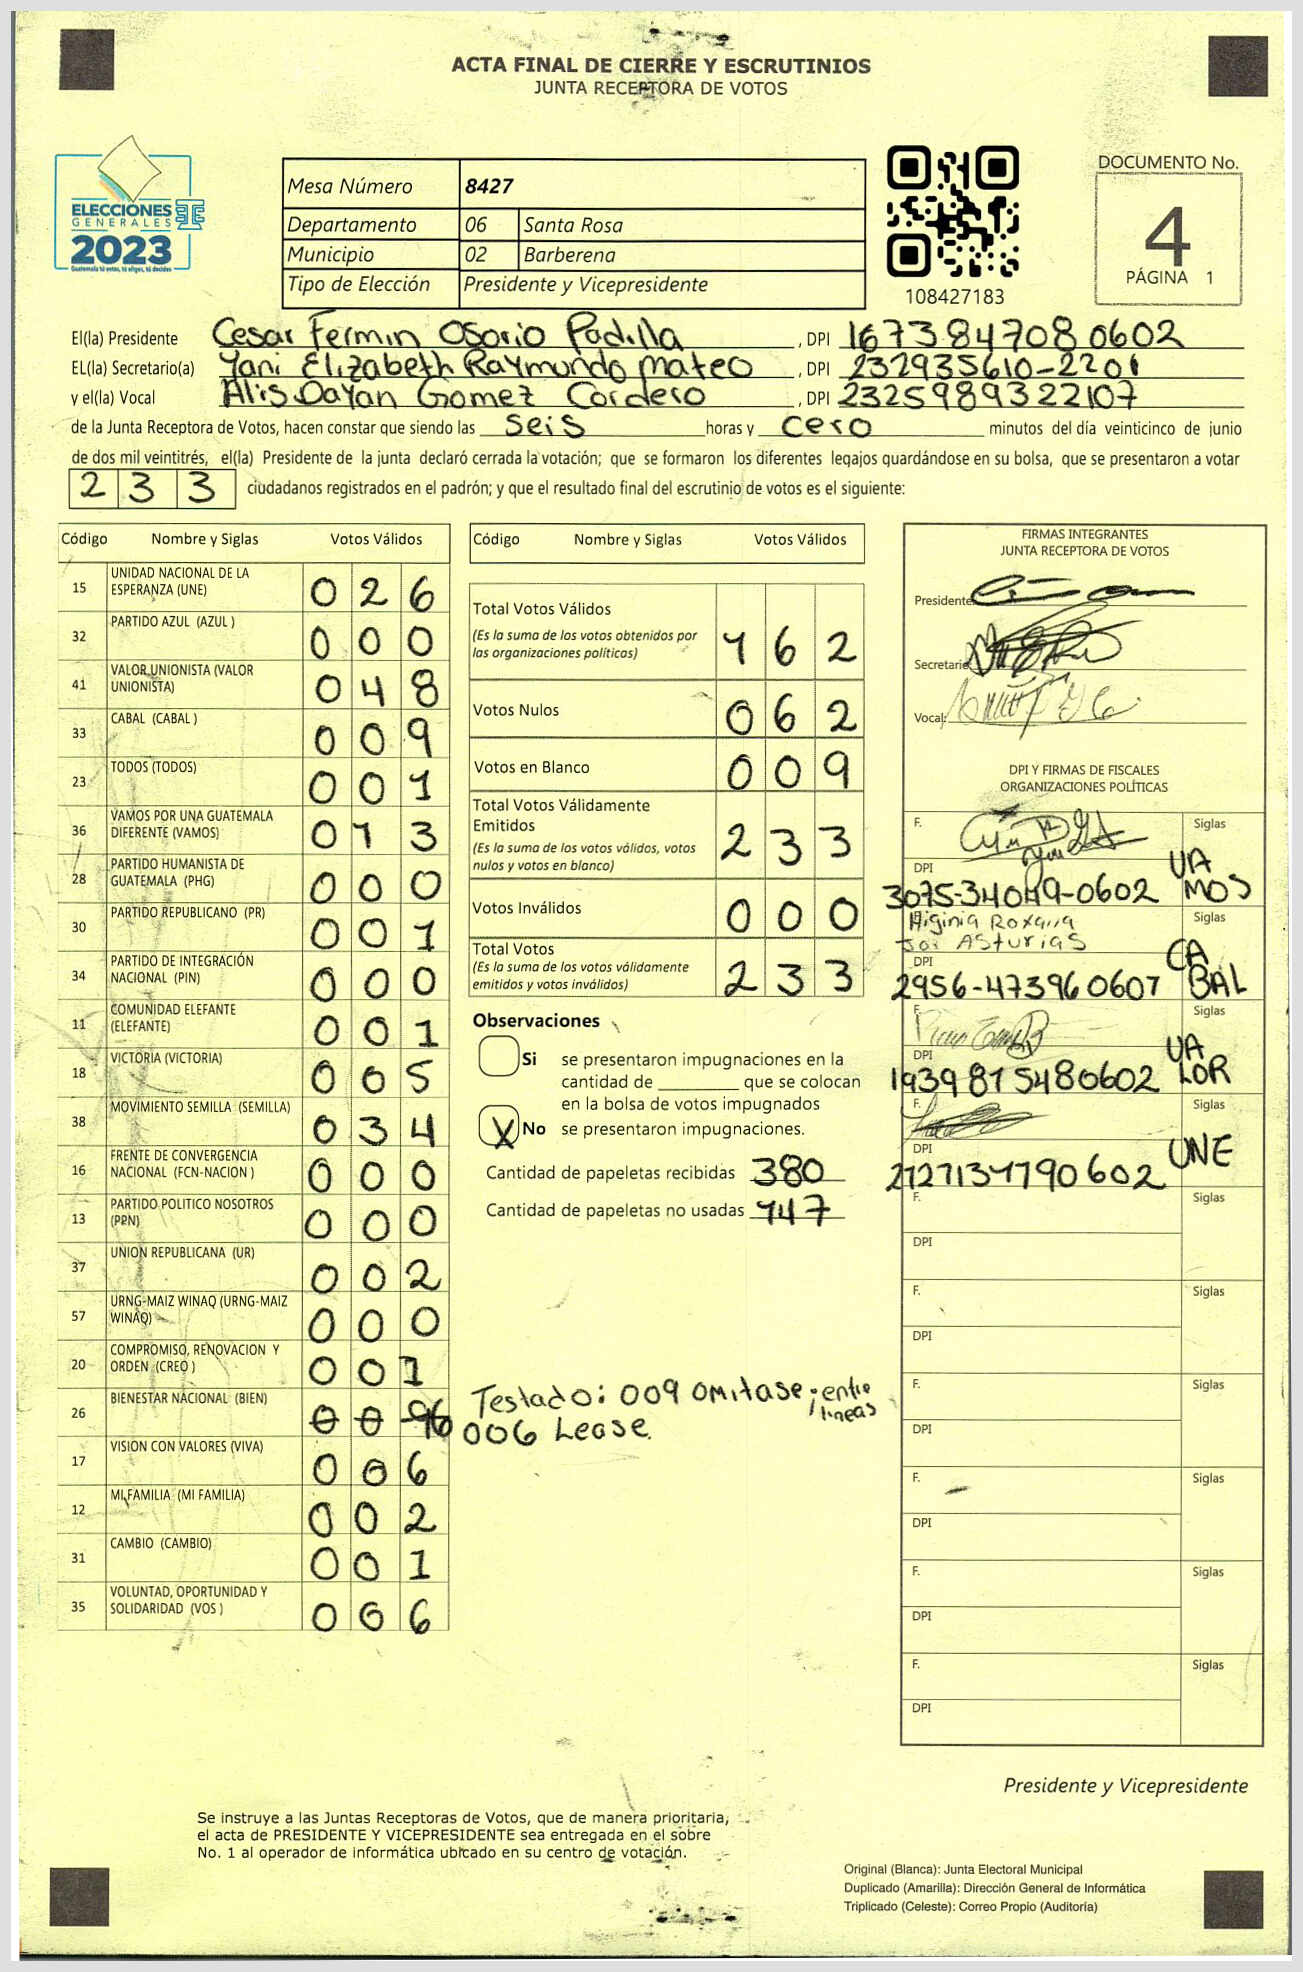 ACTA FINAL DE CIERRE Y ESCRUTINIOS
JUNTA RECEPTORA DE VOTOS
ELECCIONES
GENERALES
2023
Guatemala tú votas, tú eliges, tú decides
Mesa Número 8427
Departamento 06 Santa Rosa
Municipio 02 Barberena
Tipo de Elección Presidente y Vicepresidente
108427183
DOCUMENTO No.
4
PÁGINA 1
El(la) Presidente Cesar Fermin Osorio Padilla , DPI 1673847080602
EL(la) Secretario(a) Yani Elizabeth Raymundo Mateo , DPI 232935610-2201
y el(la) Vocal Alis Dayan Gomez Cordero , DPI 2325989322107
de la Junta Receptora de Votos, hacen constar que siendo las seis horas y cero minutos del día veinticinco de junio
de dos mil veintitrés, el(la) Presidente de la junta declaró cerrada la votación; que se formaron los diferentes legajos guardándose en su bolsa, que se presentaron a votar
233 ciudadanos registrados en el padrón; y que el resultado final del escrutinio de votos es el siguiente:
Código Nombre y Siglas Votos Válidos
15 UNIDAD NACIONAL DE LA ESPERANZA (UNE) 026
32 PARTIDO AZUL (AZUL ) 000
41 VALOR UNIONISTA (VALOR UNIONISTA) 048
33 CABAL (CABAL ) 009
23 TODOS (TODOS) 001
36 VAMOS POR UNA GUATEMALA DIFERENTE (VAMOS) 013
28 PARTIDO HUMANISTA DE GUATEMALA (PHG) 000
30 PARTIDO REPUBLICANO (PR) 001
34 PARTIDO DE INTEGRACIÓN NACIONAL (PIN) 000
11 COMUNIDAD ELEFANTE (ELEFANTE) 001
18 VICTORIA (VICTORIA) 005
38 MOVIMIENTO SEMILLA (SEMILLA) 034
16 FRENTE DE CONVERGENCIA NACIONAL (FCN-NACION ) 000
13 PARTIDO POLITICO NOSOTROS (PPN) 000
37 UNION REPUBLICANA (UR) 002
57 URNG-MAIZ WINAQ (URNG-MAIZ WINAQ) 000
20 COMPROMISO, RENOVACION Y ORDEN (CREO ) 001
26 BIENESTAR NACIONAL (BIEN) 00
17 VISION CON VALORES (VIVA) 006
12 MI FAMILIA (MI FAMILIA) 002
31 CAMBIO (CAMBIO) 001
35 VOLUNTAD, OPORTUNIDAD Y SOLIDARIDAD (VOS ) 006
Código Nombre y Siglas Votos Válidos
Total Votos Válidos 162
(Es la suma de los votos obtenidos por
las organizaciones políticas)
Votos Nulos 062
Votos en Blanco 009
Total Votos Válidamente
Emitidos 233
(Es la suma de los votos válidos, votos
nulos y votos en blanco)
Votos Inválidos 000
Total Votos 233
(Es la suma de los votos válidamente
emitidos y votos inválidos)
Observaciones
Si se presentaron impugnaciones en la
cantidad de ________ que se colocan
en la bolsa de votos impugnados
X No se presentaron impugnaciones.
Cantidad de papeletas recibidas 380
Cantidad de papeletas no usadas 147
Testado: 009 omitase; entre
lineas
006 Lease.
FIRMAS INTEGRANTES
JUNTA RECEPTORA DE VOTOS
Presidente
Secretario
Vocal:
DPI Y FIRMAS DE FISCALES
ORGANIZACIONES POLÍTICAS
F. Siglas
DPI VA
3075-34049-0602 MOS
Higinia Roxana Siglas
Asturias
DPI CA
2956-473960607 BAL
F. Siglas
DPI VA
1939815480602 LOR
F. Siglas
DPI
2727134790602 UNE
F. Siglas
DPI
F. Siglas
DPI
F. Siglas
DPI
F. Siglas
DPI
F. Siglas
DPI
F. Siglas
DPI
Presidente y Vicepresidente
Se instruye a las Juntas Receptoras de Votos, que de manera prioritaria,
el acta de PRESIDENTE Y VICEPRESIDENTE sea entregada en el sobre
No. 1 al operador de informática ubicado en su centro de votación.
Original (Blanca): Junta Electoral Municipal
Duplicado (Amarilla): Dirección General de Informática
Triplicado (Celeste): Correo Propio (Auditoría)